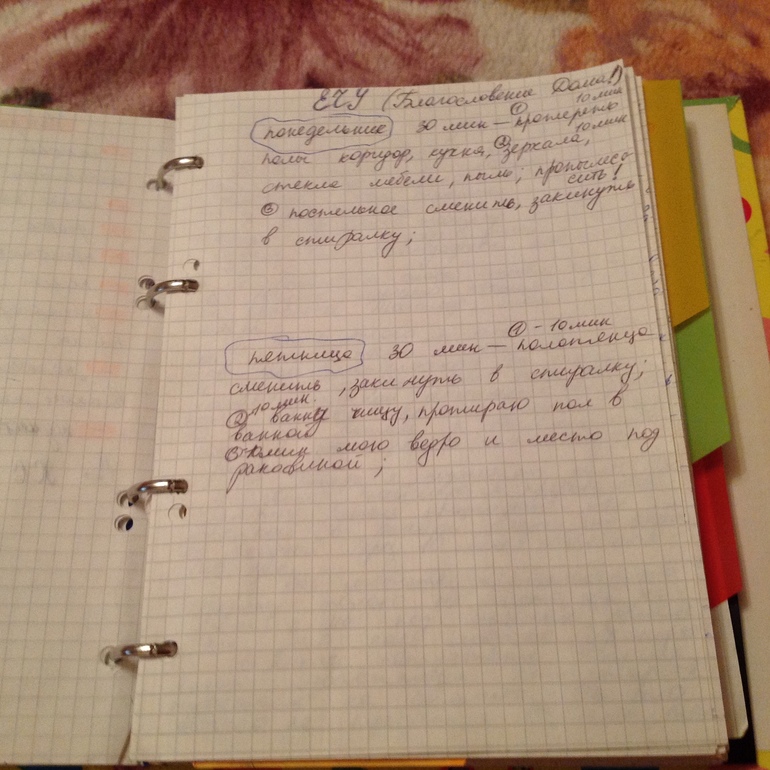 ЕЧУ (Благословение Дома!)
① 10 мин
понедельник 30 мин — протереть
полы коридор, кухня, ② зеркала, 10 мин
стекла мебели, пыль; пропылесо-
сить!
③ постельное сменить, закинуть
в стиралку;
① - 10 мин
пятница 30 мин — полотенца
сменить, закинуть в стиралку;
② 10 мин. ванну чищу, протираю пол в
ванной
③ 10 мин мою ведро и место под
раковиной;